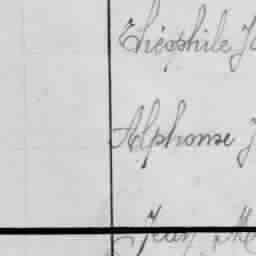 Théophile
Alphonse
Jean